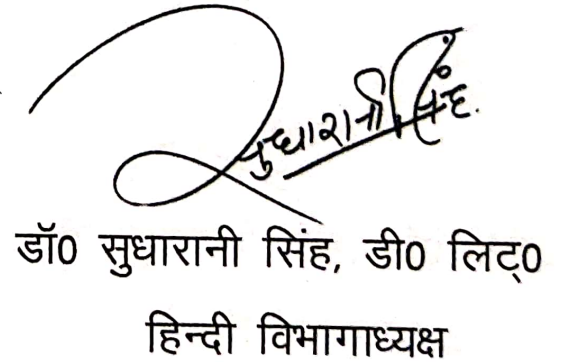 सुधारानी सिंह
डॉ0 सुधारानी सिंह, डी0 लिट्0
हिन्दी विभागाध्यक्ष